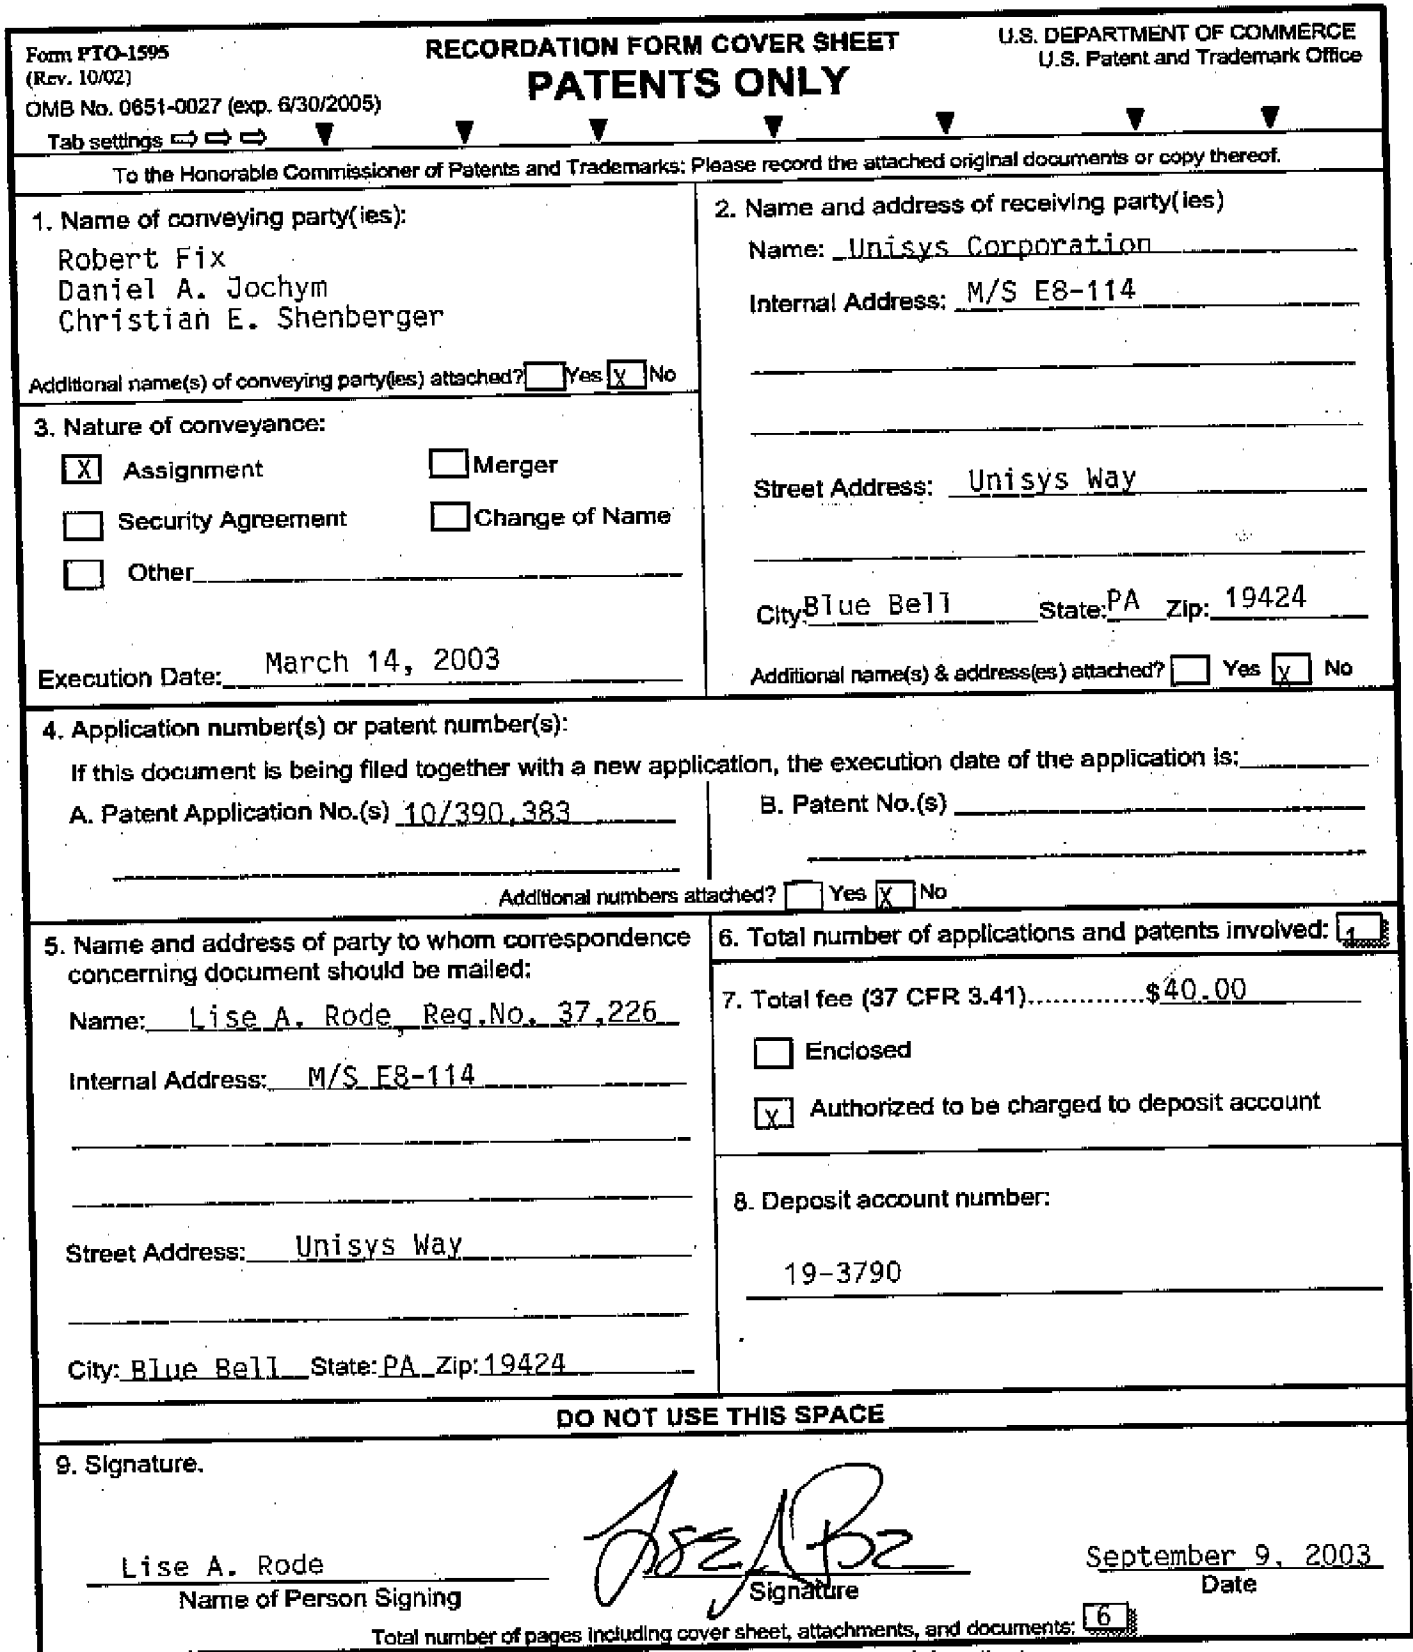 Form PTO-1595
(Rev. 10/02)
OMB No. 0651-0027 (exp. 6/30/2005)
Tab settings ⇨ ⇨ ⇨ ▼ ▼ ▼ ▼ ▼ ▼ ▼
RECORDATION FORM COVER SHEET
PATENTS ONLY
U.S. DEPARTMENT OF COMMERCE
U.S. Patent and Trademark Office
To the Honorable Commissioner of Patents and Trademarks: Please record the attached original documents or copy thereof.
1. Name of conveying party(ies):
Robert Fix
Daniel A. Jochym
Christian E. Shenberger
Additional name(s) of conveying party(ies) attached? Yes X No
2. Name and address of receiving party(ies)
Name: Unisys Corporation
Internal Address: M/S E8-114
Street Address: Unisys Way
City: Blue Bell State: PA Zip: 19424
Additional name(s) & address(es) attached? Yes X No
3. Nature of conveyance:
X Assignment Merger
Security Agreement Change of Name
Other
Execution Date: March 14, 2003
4. Application number(s) or patent number(s):
If this document is being filed together with a new application, the execution date of the application is:
A. Patent Application No.(s) 10/390,383
B. Patent No.(s)
Additional numbers attached? Yes X No
5. Name and address of party to whom correspondence
concerning document should be mailed:
Name: Lise A. Rode, Reg.No. 37,226
Internal Address: M/S E8-114
Street Address: Unisys Way
City: Blue Bell State: PA Zip: 19424
6. Total number of applications and patents involved: 1
7. Total fee (37 CFR 3.41).............$40.00
Enclosed
X Authorized to be charged to deposit account
8. Deposit account number:
19-3790
DO NOT USE THIS SPACE
9. Signature.
Lise A. Rode
Name of Person Signing
Signature
September 9, 2003
Date
Total number of pages including cover sheet, attachments, and documents: 6